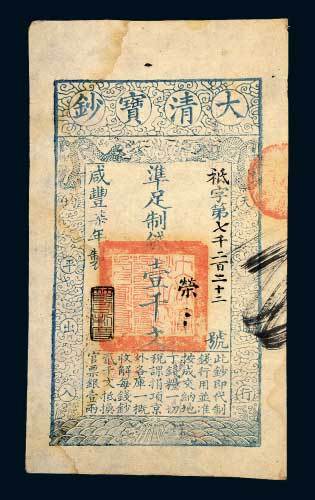 大清寶鈔
天行
祗字第七千二百二十二號
榮
準足制錢壹千文
咸豐柒年製
平出入
此鈔即代制
錢行用並准
按成交納地
丁錢糧一切
稅課捐項京
外各庫一概
收解每錢鈔
貳千文抵換
官票銀壹兩